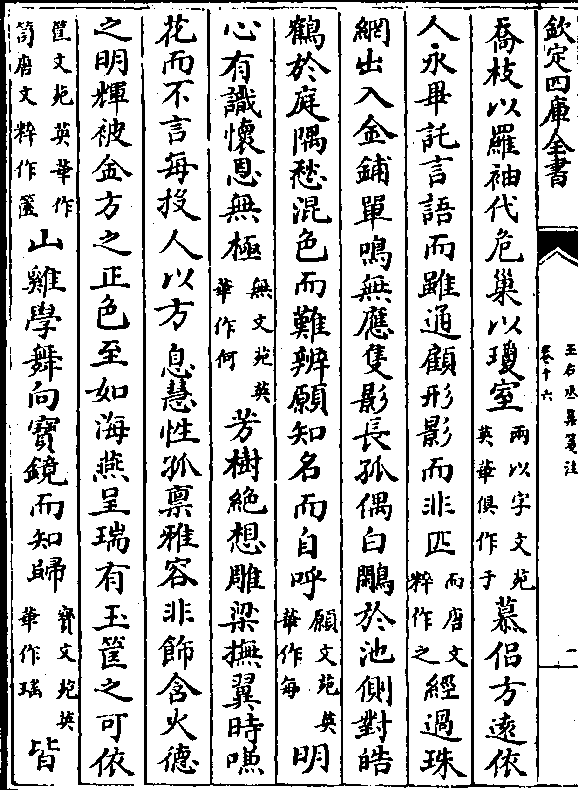 欽定四庫全書
王右丞集箋注
卷十六
喬枝以羅袖代危巢以瓊室兩以字文苑英華俱作于慕侣方遠依
人永畢託言語而雖通顧形影而非匹而唐文粹作之經過珠
網出入金鋪單鳴無應隻影長孤偶白鷴於池側對皓
鶴於庭隅愁混色而難辨願知名而自呼願文苑英華作每明
心有識懷恩無極無文苑英華作何芳樹絶想雕梁撫翼時嗛
花而不言每投人以方息慧性孤禀雅容非飾含火德
之明輝被金方之正色至如海燕呈瑞有玉筐之可依
筐文苑英華作筥唐文粹作篚山雞學舞向寳鏡而知歸寳文苑英華作瑶皆